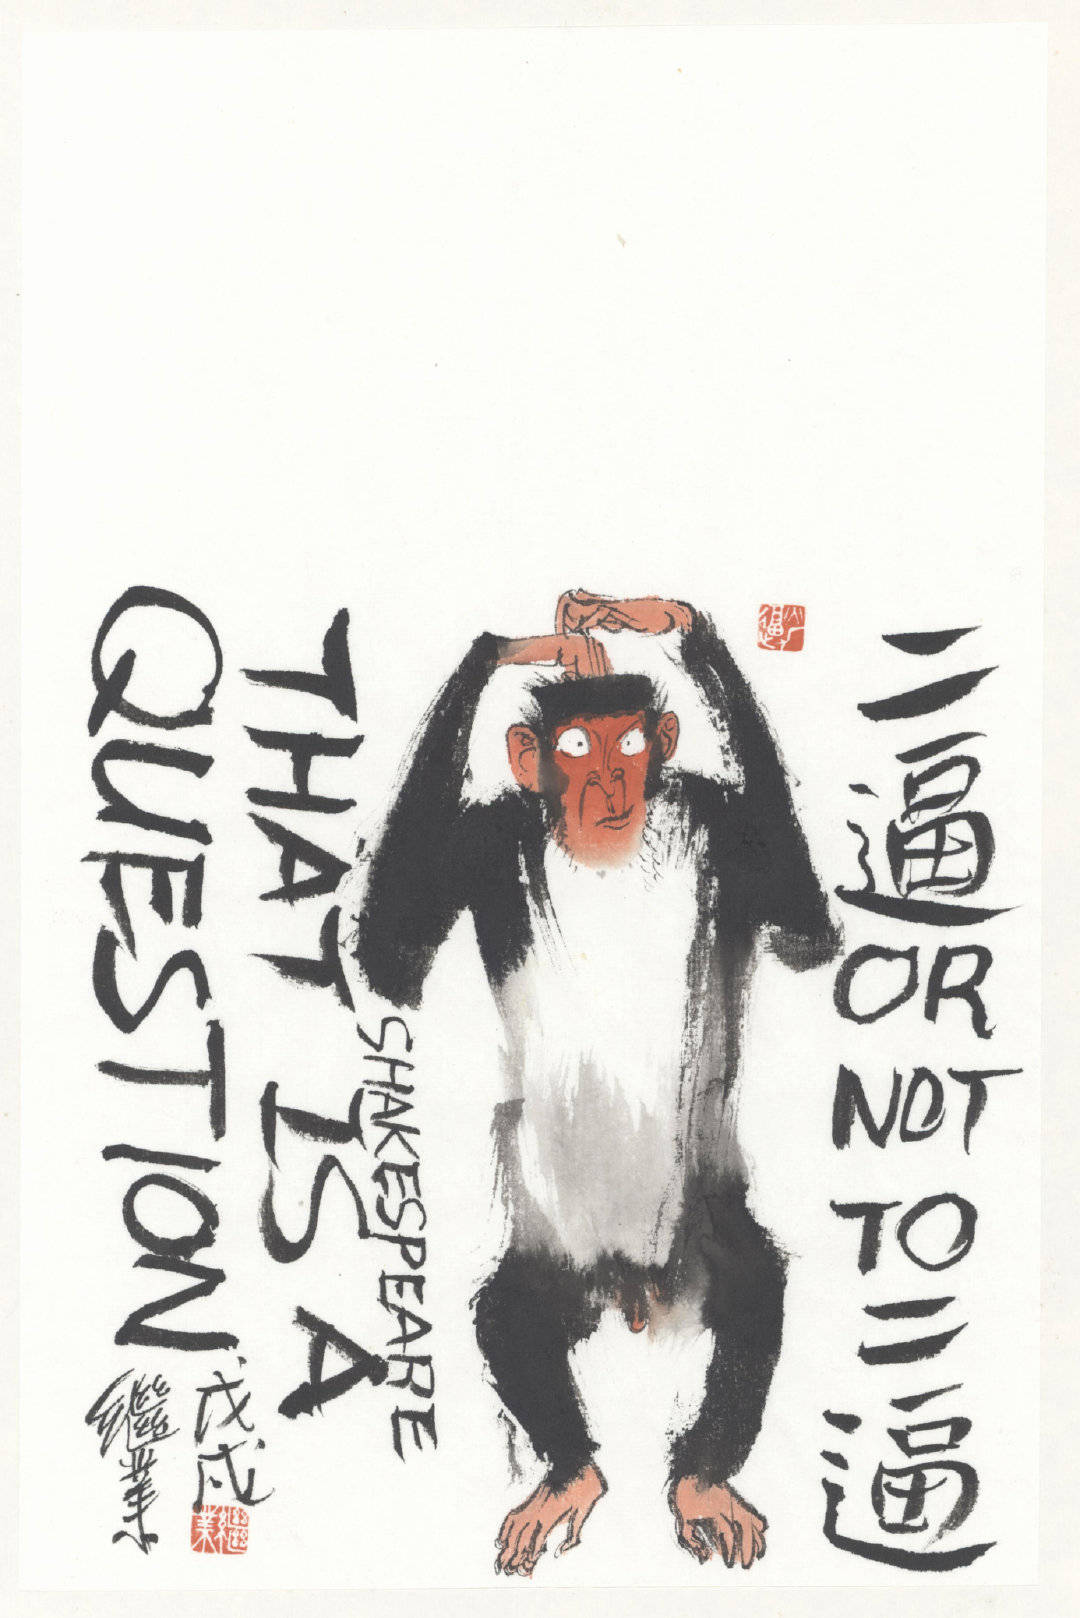 二逼 OR NOT TO 二逼
SHAKESPEARE
THAT IS A
QUESTION
戊戌
繼業
繼業